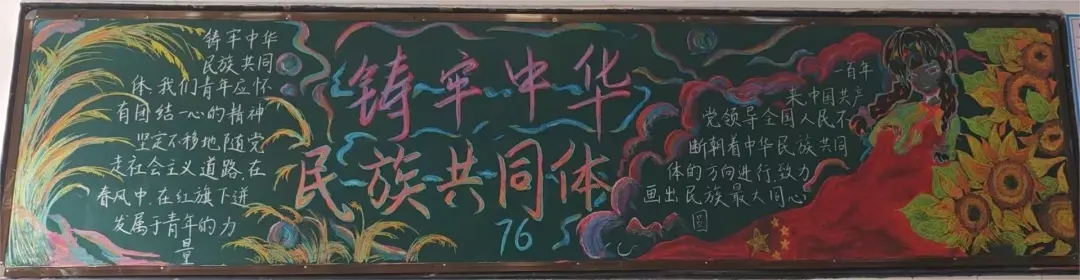 铸牢中华
民族共同
体，我们青年应怀
有团结一心的精神
坚定不移地随党
走社会主义道路，在
春风中，在红旗下迸
发属于青年的力
量
铸牢中华
民族共同体
76
一百年
来，中国共产
党领导全国人民不
断朝着中华民族共同
体的方向进行，致力
画出民族最大同心
圆